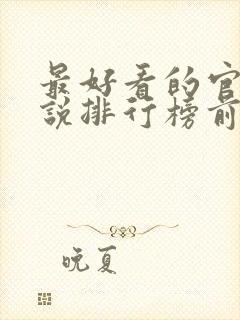 最好看的官
说排行榜前
晚夏